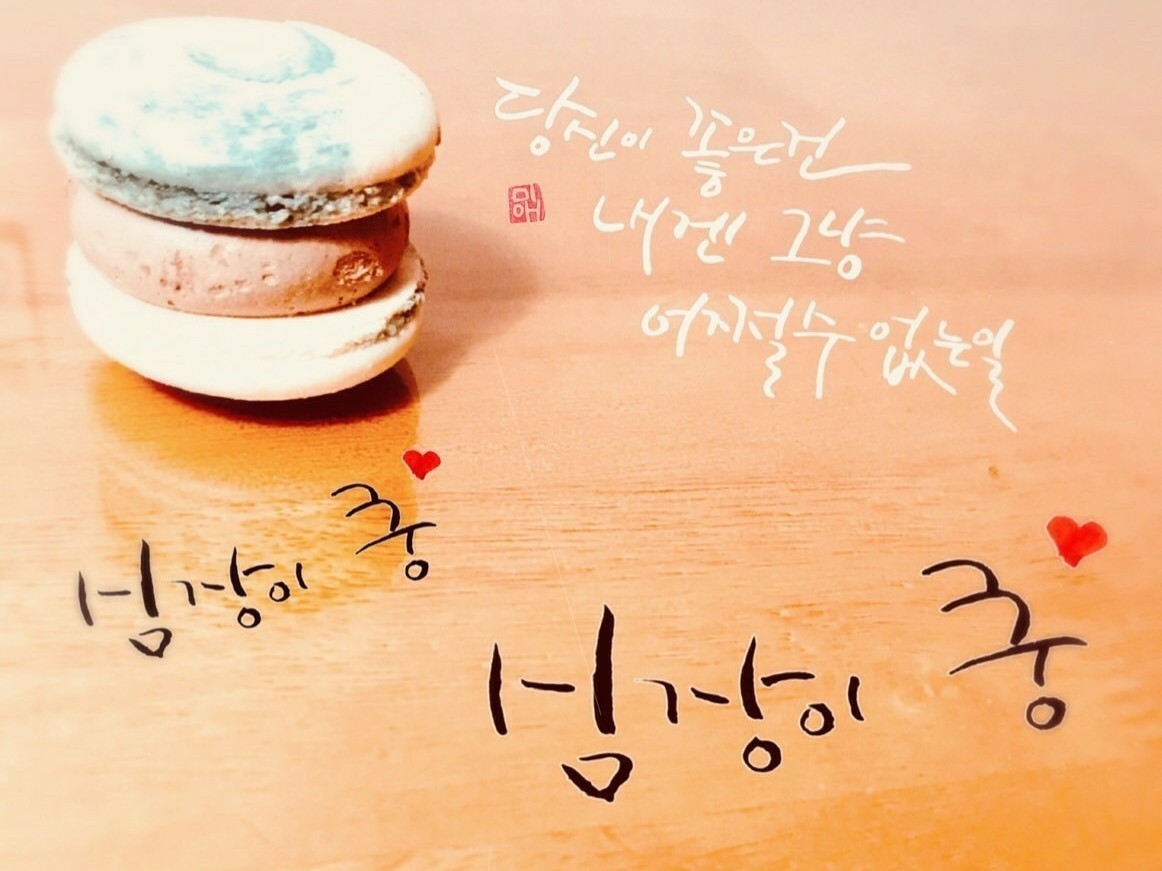 당신이 좋은건
미애
내겐 그냥
어쩔수 없는일
심장이 쿵
심장이 쿵